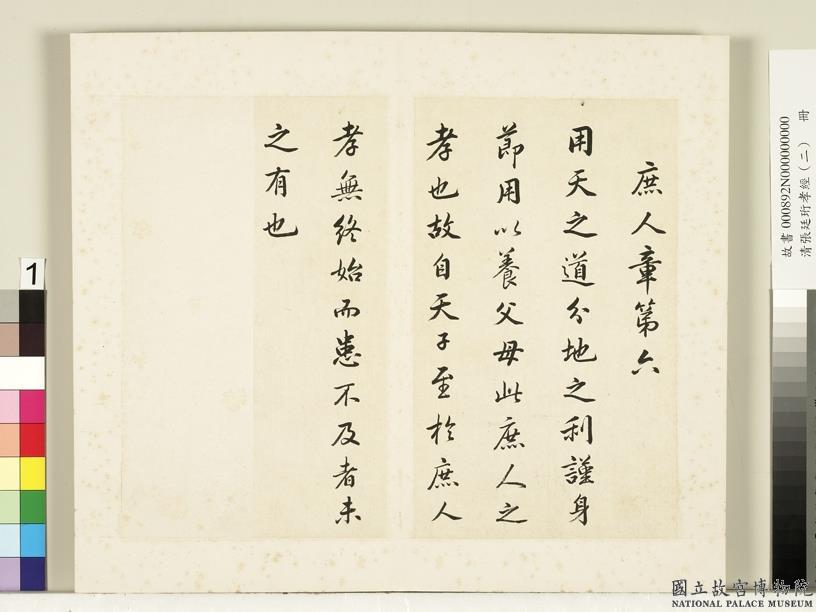 庶人章第六
用天之道分地之利謹身
節用以養父母此庶人之
孝也故自天子至於庶人
孝無終始而患不及者未
之有也
故書000892N000000000 冊
清張廷珩孝經(二)
1
國立故宮博物院
NATIONAL PALACE MUSEUM